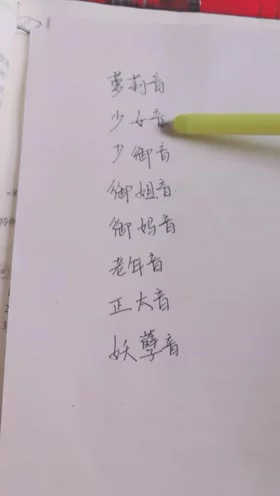 萝莉音
少女音
少御音
御姐音
御妈音
老年音
正太音
妖孽音